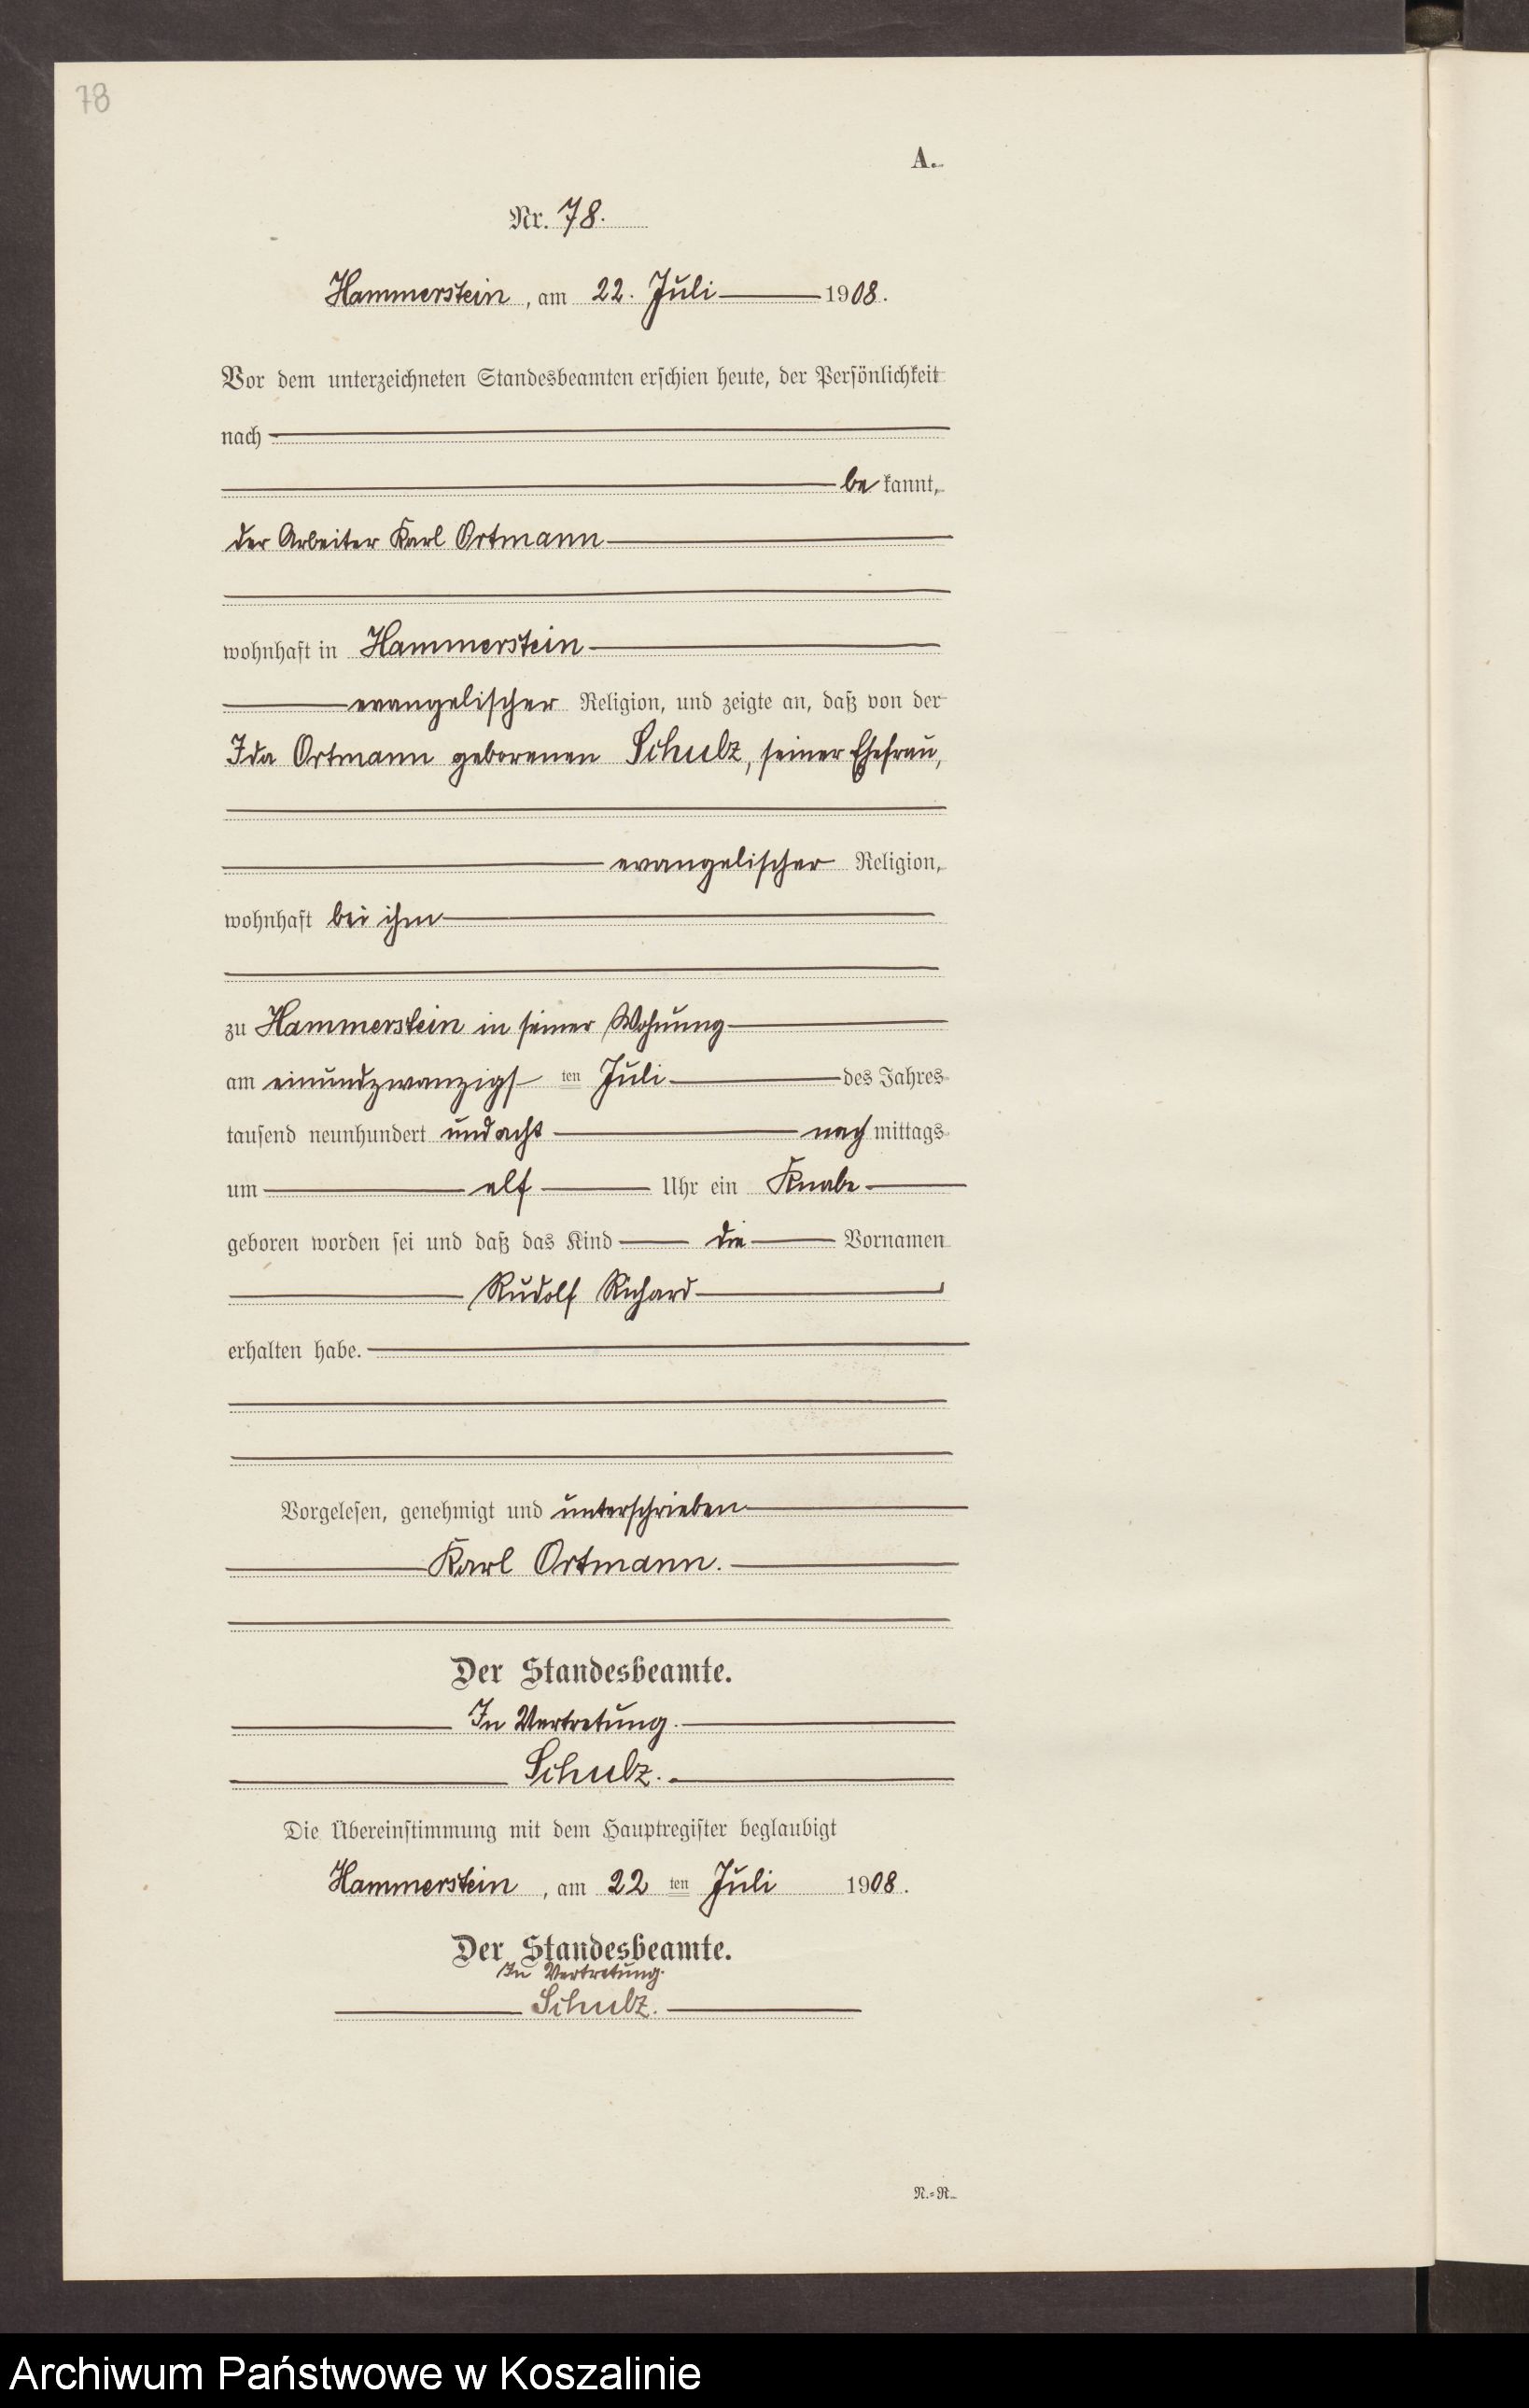 78
A.
Nr. 78.
Hammerstein, am 22. Juli 1908.
Vor dem unterzeichneten Standesbeamten erschien heute, der Persönlichkeit
nach
be kannt,
der Arbeiter Karl Ortmann
wohnhaft in Hammerstein
evangelischer Religion, und zeigte an, daß von der
Ida Ortmann geborenen Schulz, seiner Ehefrau,
evangelischer Religion,
wohnhaft bei ihm
zu Hammerstein in seiner Wohnung
am einundzwanzigs ten Juli des Jahres
tausend neunhundert und acht nach mittags
um elf Uhr ein Knabe
geboren worden sei und daß das Kind die Vornamen
Rudolf Richard
erhalten habe.
Vorgelesen, genehmigt und unterschrieben
Karl Ortmann.
Der Standesbeamte.
In Vertretung.
Schulz.
Die Übereinstimmung mit dem Hauptregister beglaubigt
Hammerstein, am 22 ten Juli 1908.
Der Standesbeamte.
In Vertretung.
Schulz.
N.=R.
Archiwum Państwowe w Koszalinie